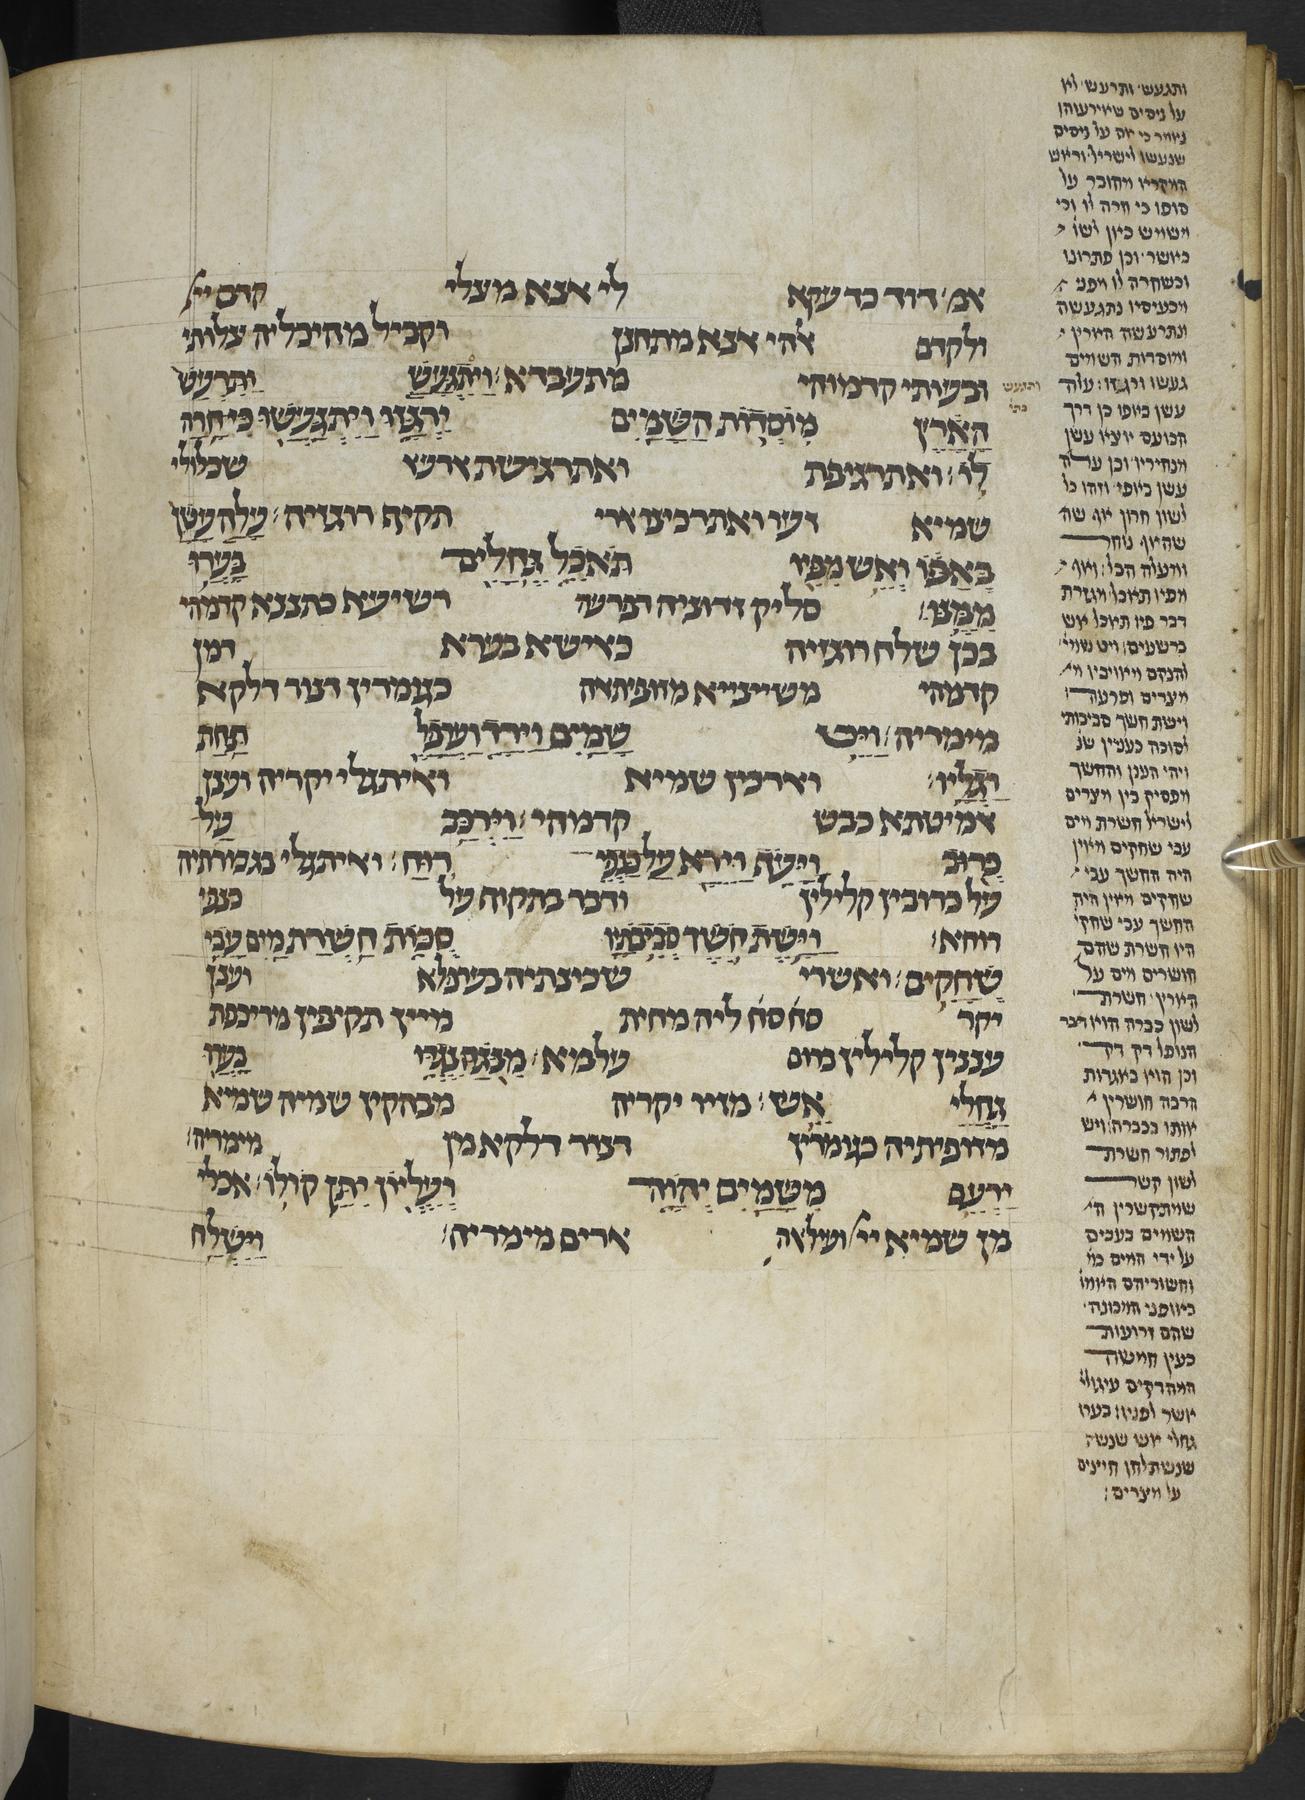 אמ׳ דוד כד עקא לי אנא מצלי קדם יי׳
ולקדם אלהי אנא מתחנן וקביל מהיכליה צלותי
ובעותי קדמוהי מתעבדא׃ וַיִּתְגָּעַשׁ וַתִּרְעַשׁ
הָאָרֶץ מוֹסְדוֹת הַשָּׁמַיִם יִרְגָּזוּ וַיִּתְגָּעֲשׁוּ כִּי חָרָה
לוֹ׃ ואתרגיפת ואתרגישת ארעא שכלולי
שמיא זעו ואתרכינו ארי תקיף רוגזיה׃ עָלָה עָשָׁן
בְּאַפּוֹ וְאֵשׁ מִפִּיו תֹּאכֵל גֶּחָלִים בָּעֲרוּ
מִמֶּנּוּ׃ סליק זדוניה דפרעה רשיעא כתננא קדמוהי
בכן שלח רוגזיה כאישא בערא דמן
קדמהי משיצייא מזופיתאה כגומרין דנור דלקא
מימריה׃ וַיֵּט שָׁמַיִם וַיֵּרַד וַעֲרָפֶל תַּחַת
רַגְלָיו׃ וארכין שמיא ואיתגלי יקריה וענן
אמיטתא כבש קדמוהי׃ וַיִּרְכַּב עַל
כְּרוּב וַיָּעֹף וַיֵּרָא עַל כַּנְפֵי רוּחַ׃ ואיתגלי בגבורתיה
על כרובין קלילין ודבר בתקוף על כנפי
רוחא׃ וַיָּשֶׁת חֹשֶׁךְ סְבִיבֹתָיו סֻכּוֹת חַשְׁרַת מַיִם עָבֵי
שְׁחָקִים׃ ואשרי שכינתיה בערפלא וענן
יקר סח׳ סח׳ ליה מחית מיין תקיפין מריכפת
עננין קלילין מרום עלמא׃ מִנֹּגַהּ נֶגְדּוֹ בָּעֲרוּ
גַּחֲלֵי אֵשׁ׃ מזיו יקריה מבהקין שמיה שמיא
מזופיתיה כגומרין דנור דלקא מן מימריה׃
יַרְעֵם מִשָּׁמַיִם יְהוָה וְעֶלְיוֹן יִתֵּן קוֹלוֹ׃ אכלי
מן שמיא יי׳ ועילאה ארים מימריה׃ וַיִּשְׁלַח
ותגעש
ותגעש ותרעש
על ניסים
שנעשו לישראל
סופו כי חרה לו
כיושר וכן פתרונו
וכשחרה לו מפני
ותרעשה הארץ
ומוסדות השמים
געשו ורגזו׃ עלה
עשן באפו כן דרך
הכועס יוצא עשן
מנחיריו וכן עלה
עשן באפי וזהו כל
לשון חרון אף
ומעלה הבל׃ ואש
מפיו תאכל מגזרת
דבר פיו תאכל אש
ברשעים׃ ויט שמי׳
להנקם מאויביו
מצרים ופרעה׃
וישת חשך סביבותי
לסוכה כענין שנ׳
ויהי הענן והחשך
מפסיק בין מצרים
לישראל חשרת מים
עבי שחקים מאין
היה החשך עבי
שחקים מאין היה
החשך עבי שחקי׳
היו חשרת שהם
חושרים מים על
הארץ חשרת
לשון כברה
הנופל דק דק
וכן הוא באגדות
הרבה חושרין
אותו בכברה׃ ויש
לפתור חשרת
לשון קשר
שמתקשרין
השמים בעבים
על ידי המים
שהם זרועות
כעין חמשה
אשר לפניו׃ בערו
גחלי אש
על מצרים׃